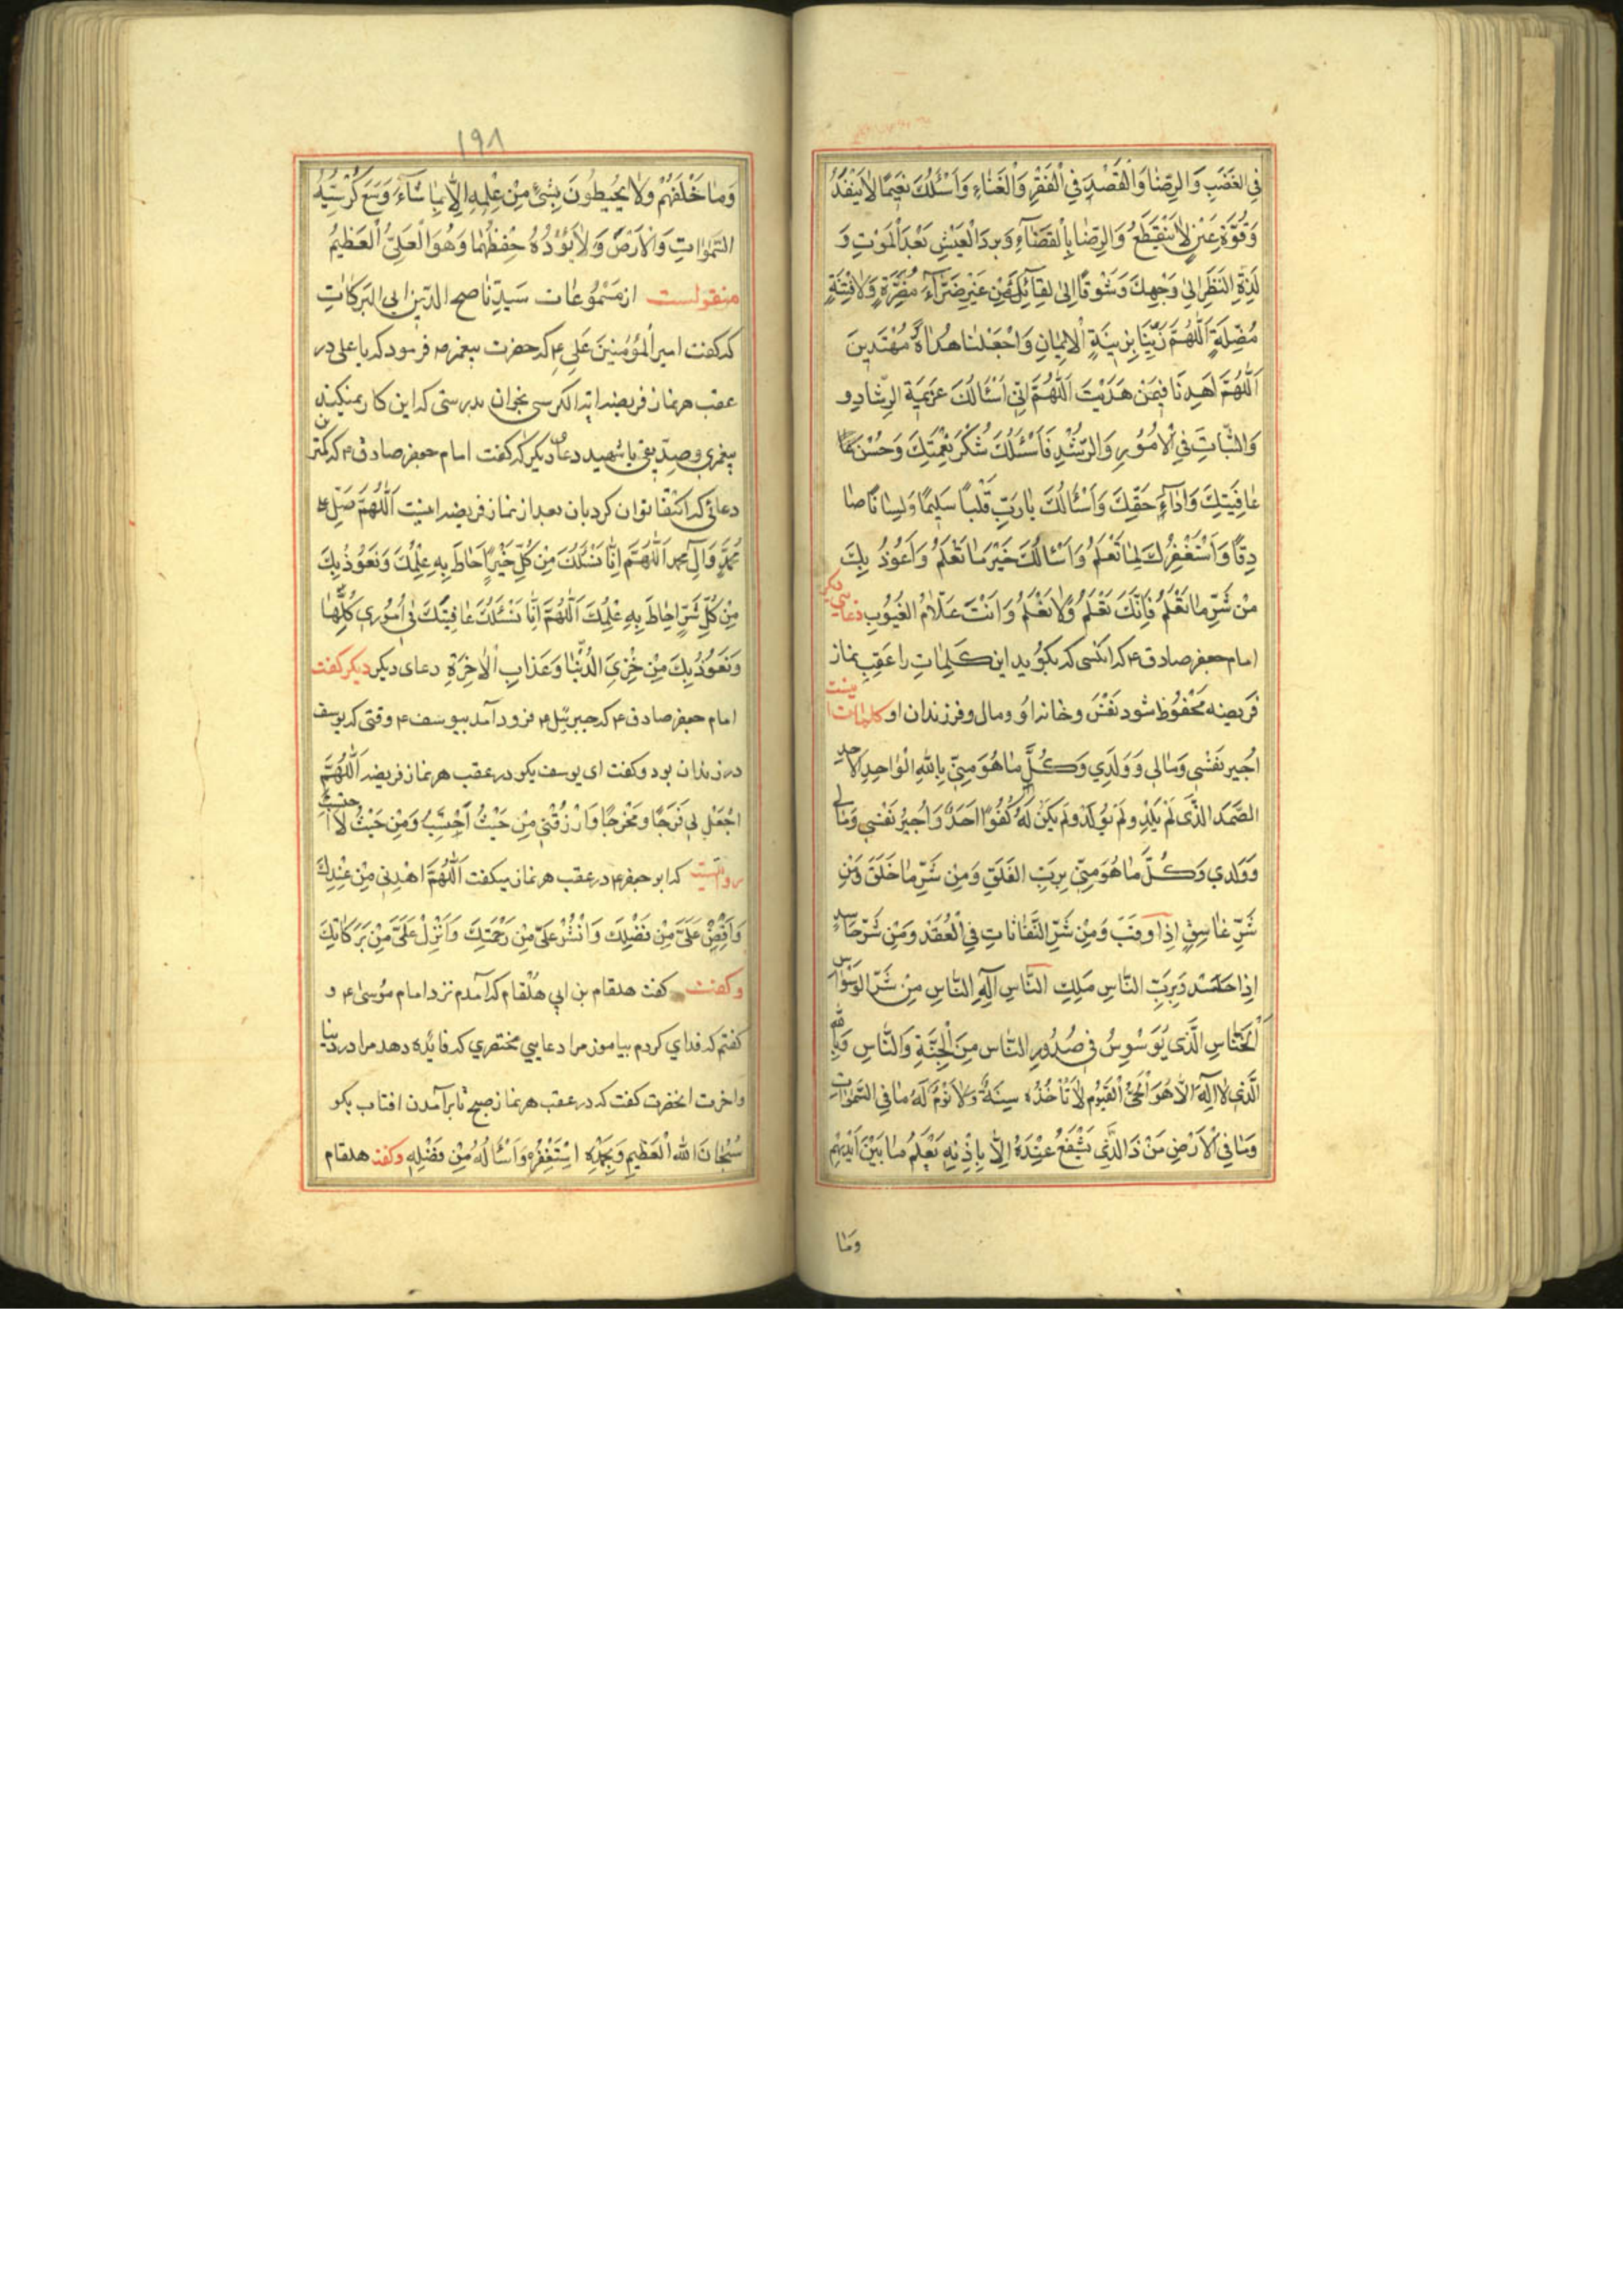 فِي الغَضَبِ وَالرِّضٰا وَالْقَصْدِ فِي الْفَقْرِ وَالْغَنٰاءِ وَاَسْئَلُكَ نَعٖيمًا لٰا يَنْفَدُ
وَقُوَّةَ عَيْنٍ لٰا يَنْقَطِعُ وَالرِّضٰا بِالْقَضٰآءِ وَبَردَ الْعَيْشِ بَعْدَ الْمَوْتِ وَ
لَذَّةَ النَّظَرِ اِلٰى وَجْهِكَ وَشَوْقًا اِلٰى لِقٰآئِكَ مِنْ غَيْرِ ضَرّٰآءَ مُضِرَّةٍ وَلٰا فِتْنَةٍ
مُضِلَّةٍ اَللّٰهُمَّ زَيِّنّٰا بِزٖينَةِ الْاٖيمٰانِ وَاجْعَلْنٰا هُدٰاةً مُهْتَدٖينَ
اَللّٰهُمَّ اهْدِنٰا فٖيمَنْ هَدَيْتَ اَللّٰهُمَّ اِنّٖي اَسْئَالُكَ عَزٖيمَةَ الرَّشٰادِ و
وَالثَّبٰاتَ فِي الْاُمُورِ وَالرُّشْدِ فَاَسْئَلُكَ شُكْرَ نِعْمَتِكَ وَحُسْنَ
عٰافِيَتِكَ وَاَدٰآءَ حَقِّكَ وَاَسْئَالُكَ يٰا رَبِّ قَلْبًا سَلٖيمًا وَلِسٰانًا صٰا
دِقًا وَاَسْتَغْفِرُكَ لِمٰا تَعْلَمُ وَاَسْئَالُكَ خَيْرَ مٰا تَعْلَمُ وَاَعُوذُ بِكَ
مِنْ شَرِّ مٰا تَعْلَمُ فَاِنَّكَ تَعْلَمُ وَلٰا نَعْلَمُ وَاَنْتَ عَلّٰامُ الْغُيُوبِ دعایی دیگر
امام جعفر صادق ع كه انكسى كه بكويد اين كَلِمٰاتِ را عَقِبِ نماز
فَريضه مَحْفُوظ شود نَفْسَ و خانه اوُ و مال و فرزندان او كلمات اینست
اُجٖيرُ نَفْسٖي وَمٰالٖي وَوَلَدٖي وَكُلَّ مٰا هُوَ مِنّٖي بِاللّٰهِ الْوٰاحِدِ الْاَحَدِ
الصَّمَدِ الَّذٖى لَمْ يَلِدْ وَلَمْ يُولَدْ وَلَمْ يَكُنْ لَهُ كُفُوًا اَحَدٌ وَاُجٖيرُ نَفْسٖي وَمٰالٖي
وَوَلَدٖي وَكُلَّ مٰا هُوَ مِنّٖي بِرَبِّ الْفَلَقِ وَمِنْ شَرِّ مٰا خَلَقَ وَمِنْ
شَرِّ غٰاسِقٍ اِذٰا وَقَبَ وَمِنْ شَرِّ النَّفّٰاثٰاتِ فِي الْعُقَدِ وَمِنْ شَرِّ حٰاسِدٍ
اِذٰا حَسَدَ وَبِرَبِّ النّٰاسِ مَلِكِ النّٰاسِ اِلٰهِ النّٰاسِ مِنْ شَرِّ الْوَسْوٰاسِ
الْخَنّٰاسِ الَّذٖى يُوَسْوِسُ فٖي صُدُورِ النّٰاسِ مِنَ الْجِنَّةِ وَالنّٰاسِ وَبِاللّٰهِ
الَّذٖي لٰا اِلٰهَ اِلّٰا هُوَ الْحَيُّ الْقَيُّومُ لٰا تَأْخُذُهُ سِنَةٌ وَلٰا نَوْمٌ لَهُ مٰا فِي السَّمٰوٰاتِ
وَمٰا فِي الْاَرْضِ مَنْ ذَا الَّذٖي يَشْفَعُ عِنْدَهُ اِلّٰا بِاِذْنِهٖ يَعْلَمُ مٰا بَيْنَ اَيْدٖيهِمْ
وَمٰا
١٩٨
وَمٰا خَلْفَهُمْ وَلٰا يُحٖيطُونَ بِشَيْءٍ مِنْ عِلْمِهٖ اِلّٰا بِمٰا شٰآءَ وَسِعَ كُرْسِيُّهُ
السَّمٰوٰاتِ وَالْاَرْضَ وَلٰا يَؤُدُهُ حِفْظُهُمٰا وَهُوَ الْعَلِيُّ الْعَظٖيمُ
منقولست از مَسْمُوعٰات سَيِّدِ نٰاصح الدّٖين ابى البَرَكٰاتِ
كه كفت امير الْمُؤْمِنٖينَ عَلى ع كه حضرت پيغمبر ص فرمود كه يا على در
عقب هر نماز فريضه اية الكرسى بخوان بدرستى كه اين كار نميكند
پيغمبرى و صدّيقى يا شهيد دعاى ديكر كه كفت امام جعفر صادق ع كه كمتر
دعائى كه اكتفا توان كرد بان بعد از نماز فريضه اينست اَللّٰهُمَّ صَلِّ عَلى
مُحَمَّدٍ وَآلِ مُحَمَّد اَللّٰهُمَّ اِنّٰا نَسْئَلُكَ مِنْ كُلِّ خَيْرٍ اَحٰاطَ بِهِ عِلْمُكَ وَنَعُوذُ بِكَ
مِنْ كُلِّ شَرٍّ اَحٰاطَ بِهِ عِلْمُكَ اَللّٰهُمَّ اِنّٰا نَسْئَلُكَ عٰافِيَتَكَ فٖي اُمُورٖي كُلِّهٰا
وَنَعُوذُ بِكَ مِنْ خِزْىِ الدُّنْيٰا وَعَذٰابِ الْاٰخِرَةِ دعاى ديكر ديكر كفت
امام جعفر صادق ع كه جبرئيل ع فرود آمد بيوسف ع وقتى كه يوسف
در زندان بود و كفت اى يوسف بكو در عقب هر نماز فريضه اَللّٰهُمَّ
اجْعَلْ لٖي فَرَجًا وَمَخْرَجًا وَارْزُقْنٖي مِنْ حَيْثُ اَحْتَسِبُ وَمِنْ حَيْثُ لٰا اَحْتَسِبُ
روايتست كه ابو جعفر ع در عقب هر نماز ميكفت اَللّٰهُمَّ اهْدِنٖي مِنْ عِنْدِكَ
وَاَفِضْ عَلَيَّ مِنْ فَضْلِكَ وَانْشُرْ عَلَيَّ مِنْ رَحْمَتِكَ وَاَنْزِلْ عَلَيَّ مِنْ بَرَكٰاتِكَ
و كفت كفت هلقام بن ابى هلقام كه آمدم نزد امام موسى ع و
كفتم كه فداى كردم بياموز مرا دعايى مختصرى كه فائده دهد مرا در دنيا
و اخرت انحضرت كفت كه در عقب هر نماز صبح تا برآمدن افتاب بكو
سُبْحٰانَ اللّٰهِ الْعَظٖيمِ وَبِحَمْدِهٖ اَسْتَغْفِرُهُ وَاَسْئَالُهُ مِنْ فَضْلِهٖ و كفت هلقام